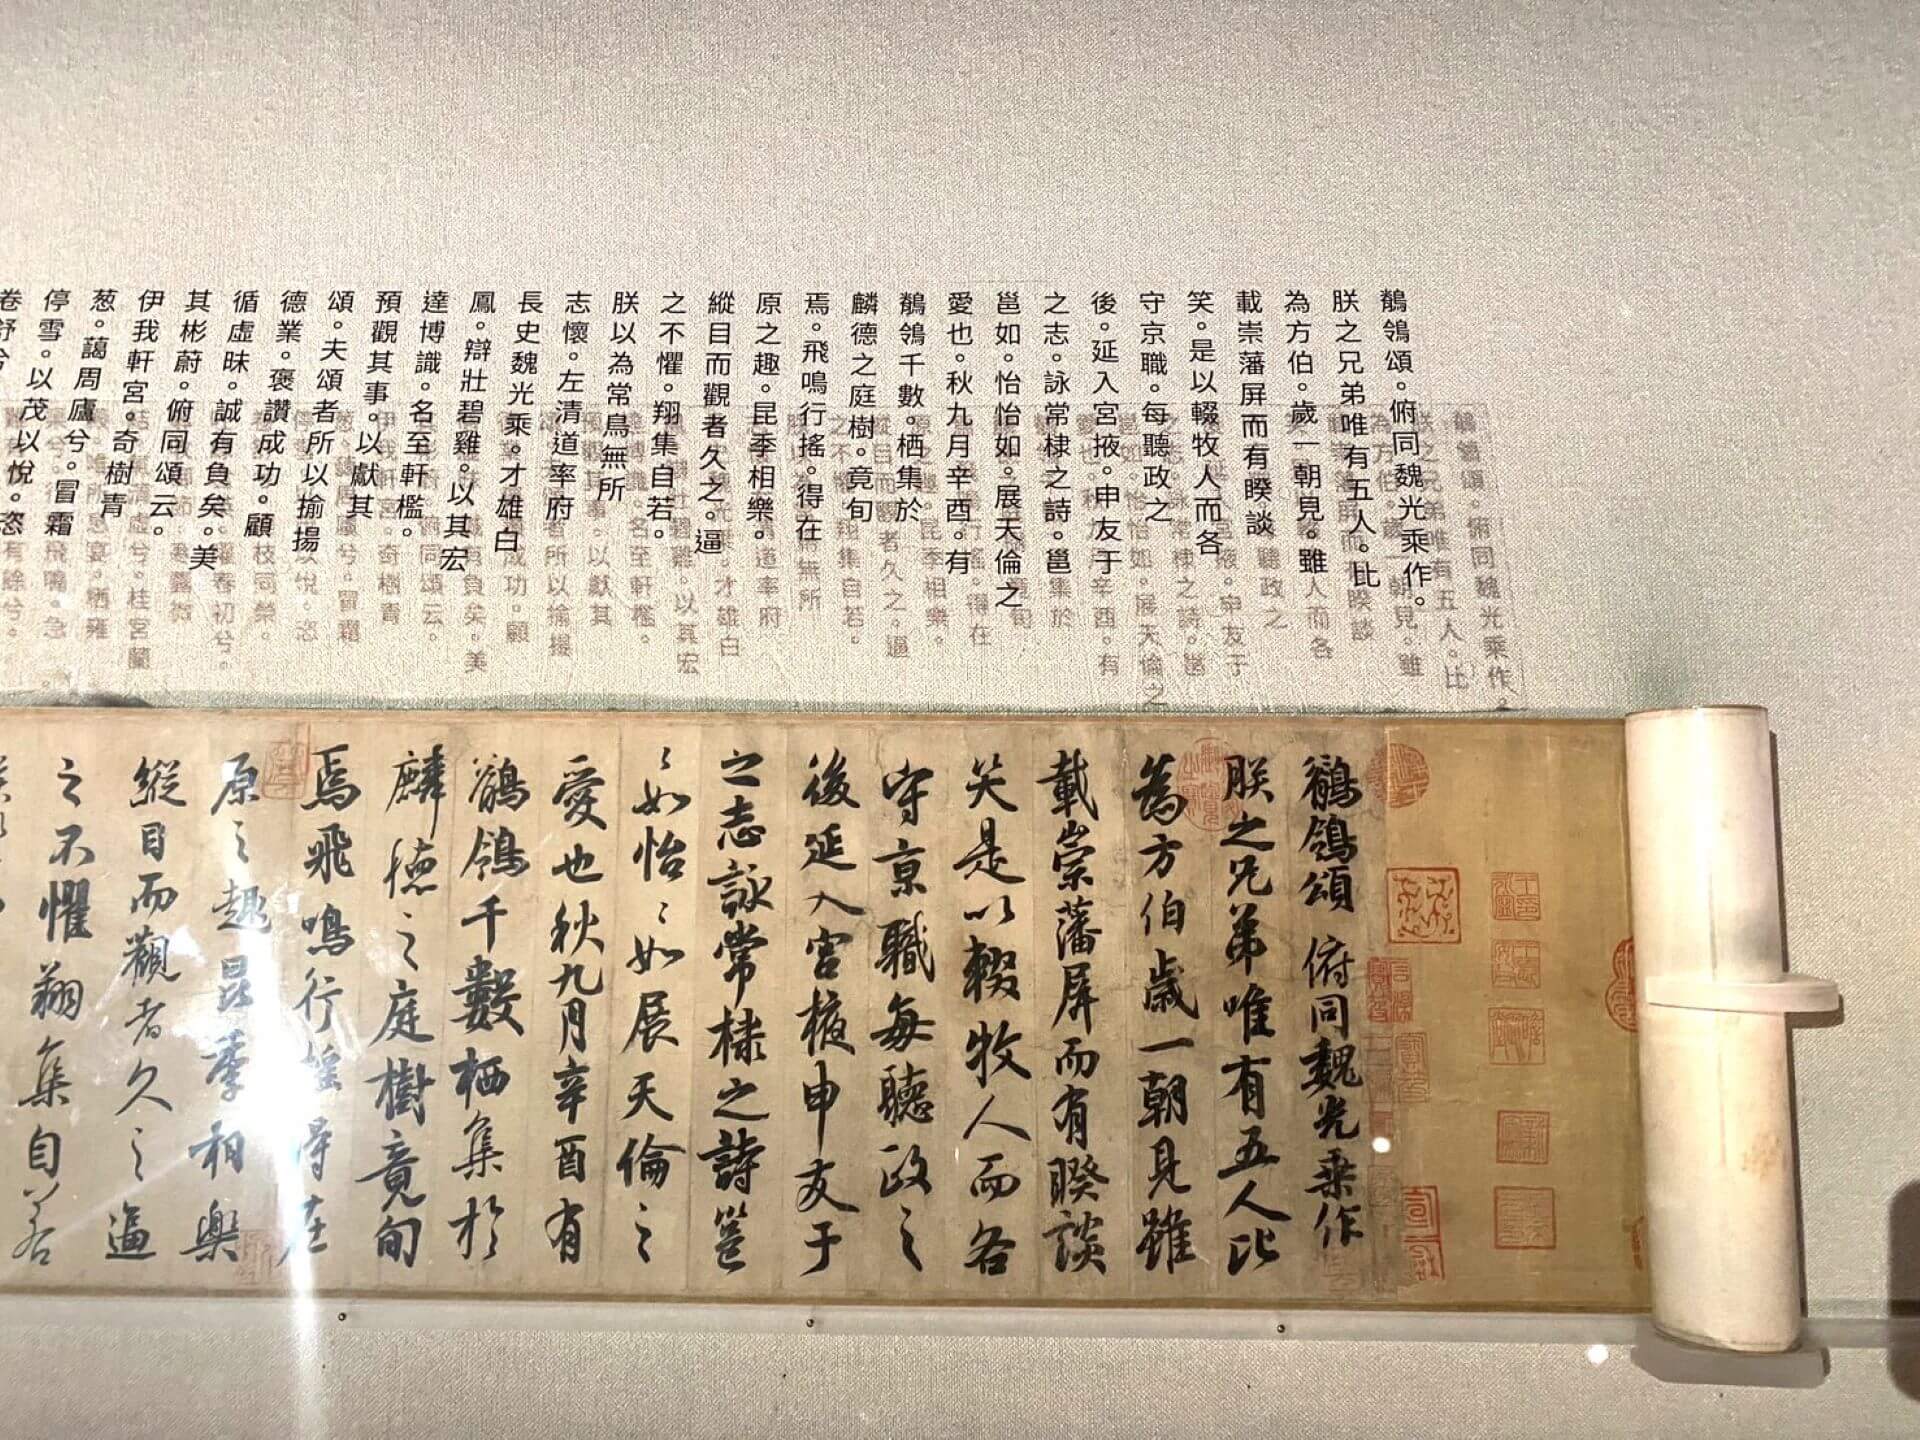 鶺鴒頌。俯同魏光乘作。
朕之兄弟唯有五人。比
為方伯。歲一朝見。雖
載崇藩屏而有睽談
笑。是以輟牧人而各
守京職。每聽政之
後。延入宮掖。申友于
之志。詠常棣之詩。邕
邕如。怡怡如。展天倫之
愛也。秋九月辛酉。有
鶺鴒千數。栖集於
麟德之庭樹。竟旬
焉。飛鳴行搖。得在
原之趣。昆季相樂。
縱目而觀者久之。逼
之不懼。翔集自若。
朕以為常鳥無所
志懷。左清道率府
長史魏光乘。才雄白
鳳。辯壯碧雞。以其宏
達博識。名至軒檻。
預觀其事。以獻其
頌。夫頌者所以揄揚
德業。褒讚成功。顧
循虛昧。誠有負矣。美
其彬蔚。俯同頌云。
伊我軒宮。奇樹青
葱。藹周廬兮。冒霜
停雪。以茂以悅。恣
卷舒兮
鶺鴒頌 俯同魏光乘作
朕之兄弟唯有五人比
為方伯歲一朝見雖
載崇藩屏而有睽談
笑是以輟牧人而各
守京職每聽政之
後延入宮掖申友于
之志詠常棣之詩邕
〻如怡〻如展天倫之
愛也秋九月辛酉有
鶺鴒千數栖集於
麟德之庭樹竟旬
焉飛鳴行搖得在
原之趣昆季相樂
縱目而觀者久之逼
之不懼翔集自若